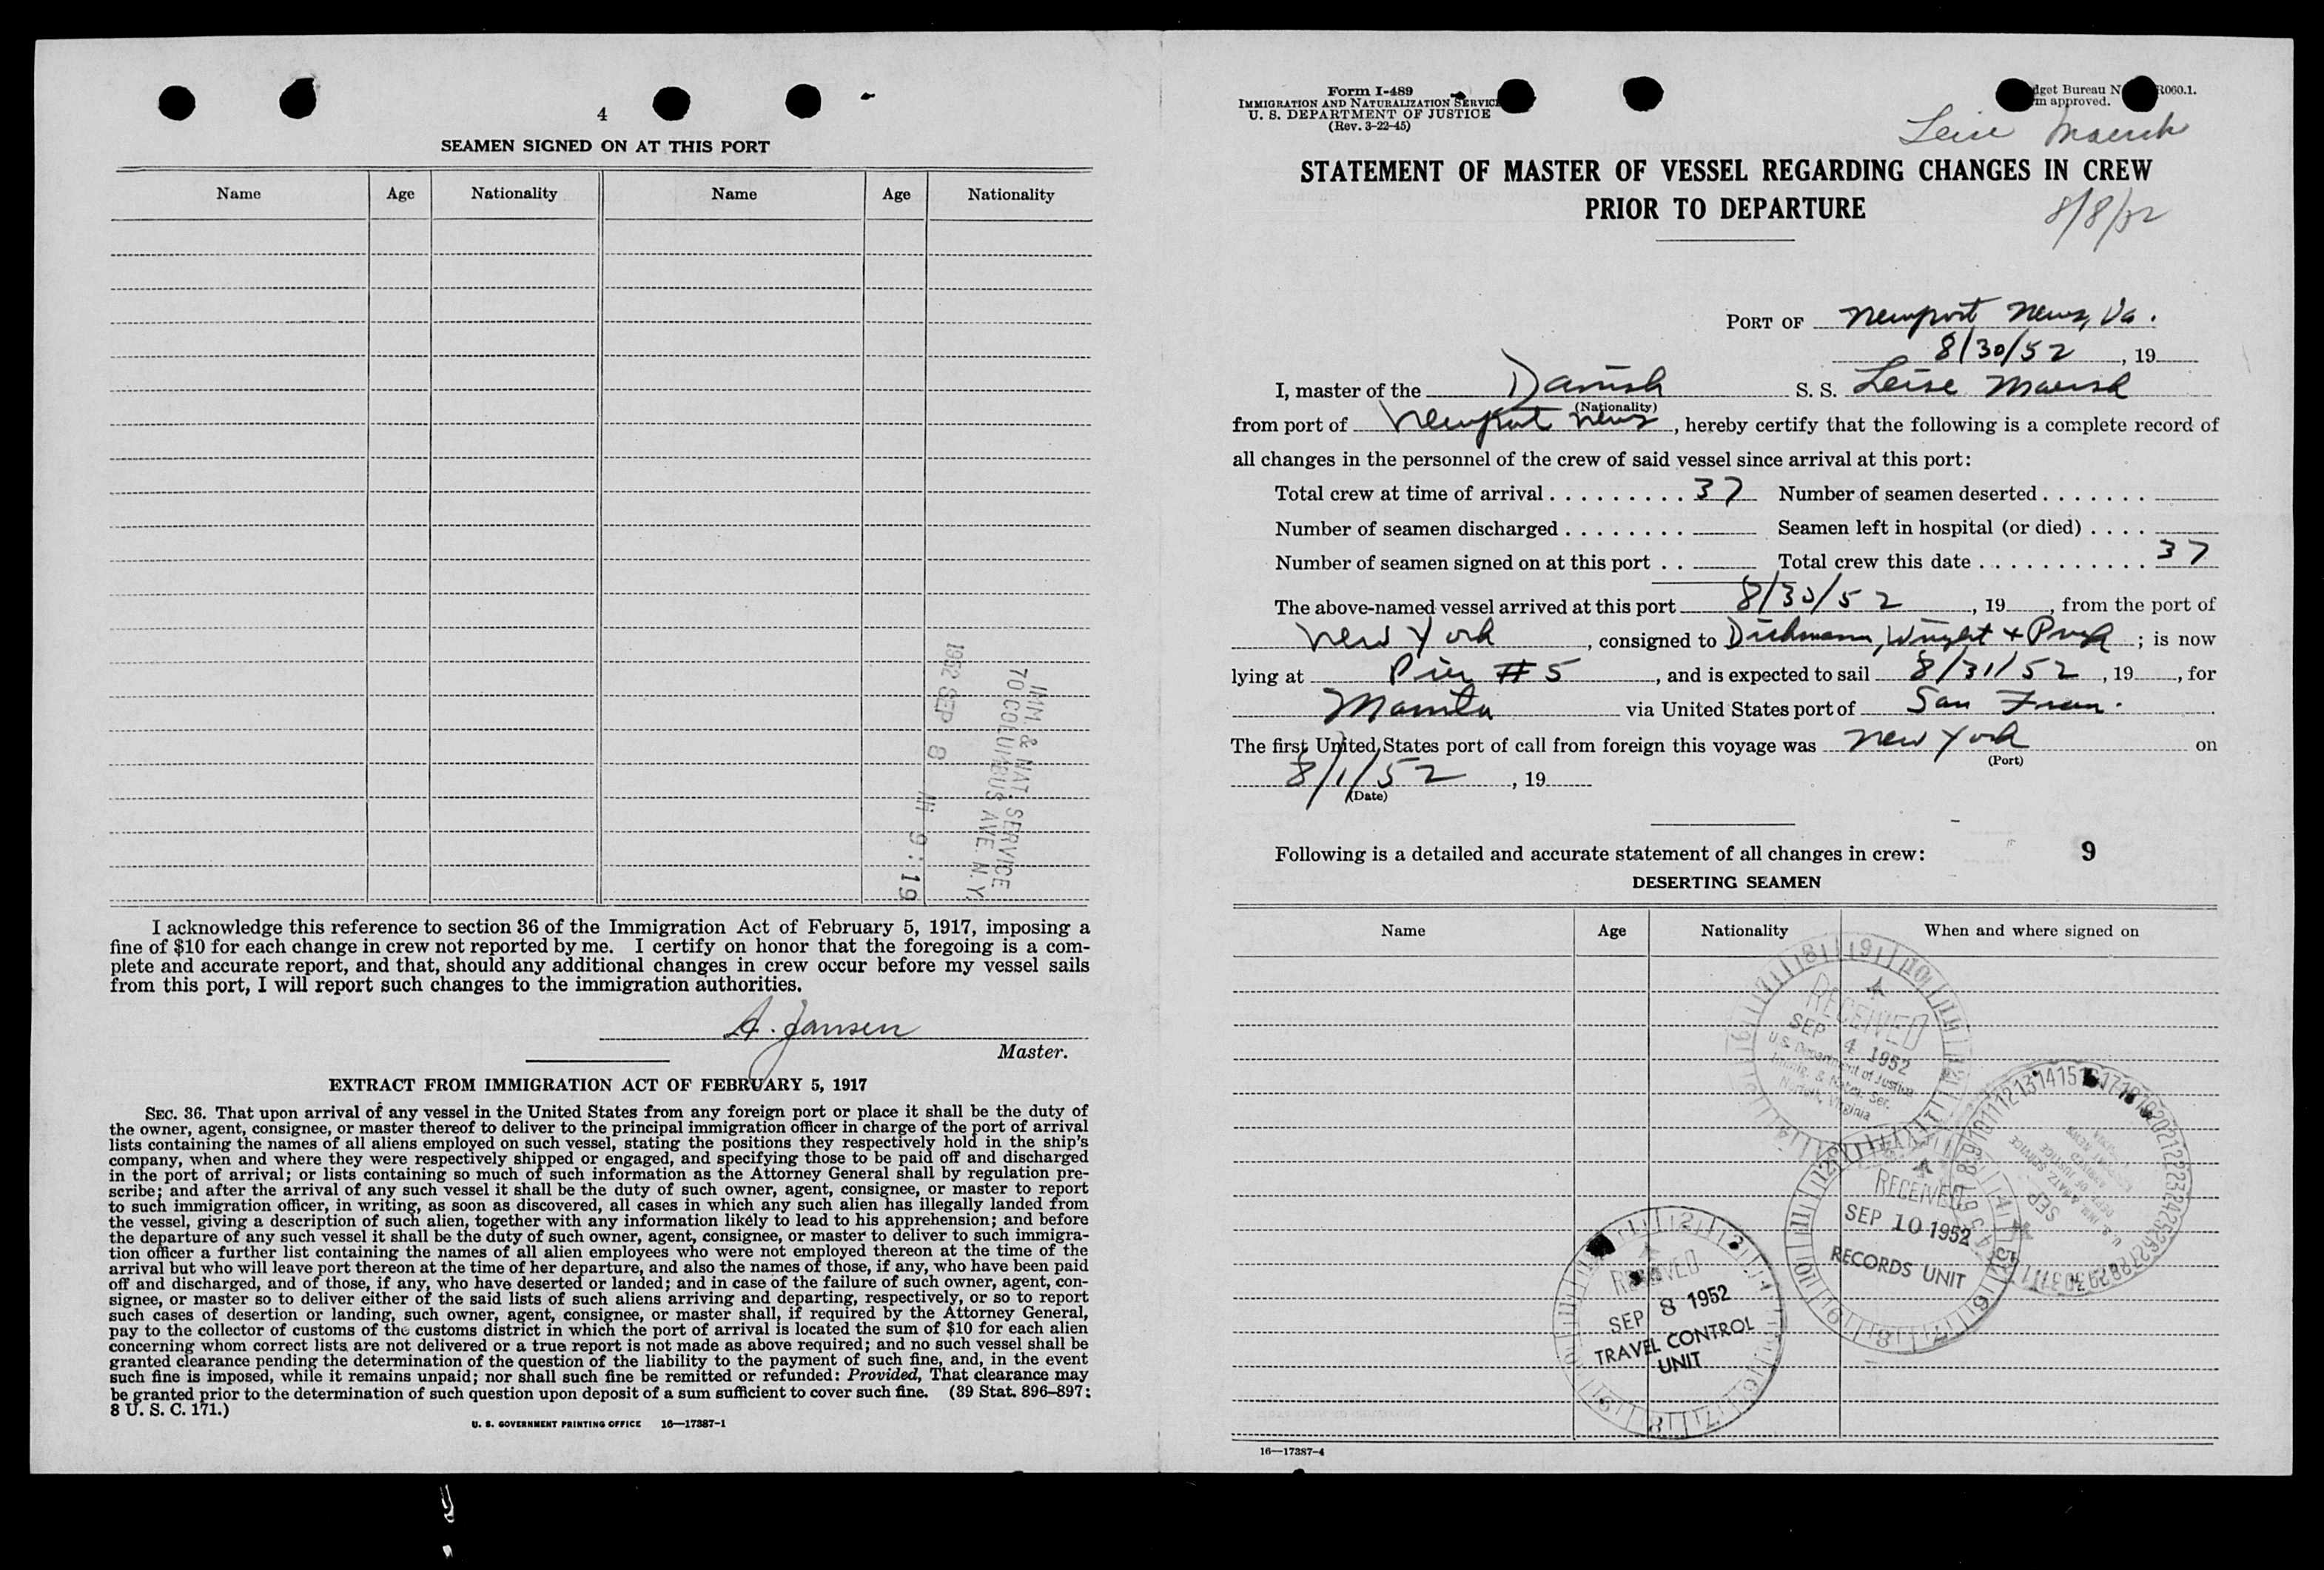 4
SEAMEN SIGNED ON AT THIS PORT
Name Age Nationality Name Age Nationality
IMM. & NAT. SERVICE
70 COLUMBUS AVE. N.Y.
1952 SEP 8 9:19
I acknowledge this reference to section 36 of the Immigration Act of February 5, 1917, imposing a
fine of $10 for each change in crew not reported by me. I certify on honor that the foregoing is a com-
plete and accurate report, and that, should any additional changes in crew occur before my vessel sails
from this port, I will report such changes to the immigration authorities.
A. Jansen
Master.
EXTRACT FROM IMMIGRATION ACT OF FEBRUARY 5, 1917
SEC. 36. That upon arrival of any vessel in the United States from any foreign port or place it shall be the duty of
the owner, agent, consignee, or master thereof to deliver to the principal immigration officer in charge of the port of arrival
lists containing the names of all aliens employed on such vessel, stating the positions they respectively hold in the ship's
company, when and where they were respectively shipped or engaged, and specifying those to be paid off and discharged
in the port of arrival; or lists containing so much of such information as the Attorney General shall by regulation pre-
scribe; and after the arrival of any such vessel it shall be the duty of such owner, agent, consignee, or master to report
to such immigration officer, in writing, as soon as discovered, all cases in which any such alien has illegally landed from
the vessel, giving a description of such alien, together with any information likely to lead to his apprehension; and before
the departure of any such vessel it shall be the duty of such owner, agent, consignee, or master to deliver to such immigra-
tion officer a further list containing the names of all alien employees who were not employed thereon at the time of the
arrival but who will leave port thereon at the time of her departure, and also the names of those, if any, who have been paid
off and discharged, and of those, if any, who have deserted or landed; and in case of the failure of such owner, agent, con-
signee, or master so to deliver either of the said lists of such aliens arriving and departing, respectively, or so to report
such cases of desertion or landing, such owner, agent, consignee, or master shall, if required by the Attorney General,
pay to the collector of customs of the customs district in which the port of arrival is located the sum of $10 for each alien
concerning whom correct lists are not delivered or a true report is not made as above required; and no such vessel shall be
granted clearance pending the determination of the question of the liability to the payment of such fine, and, in the event
such fine is imposed, while it remains unpaid; nor shall such fine be remitted or refunded: Provided, That clearance may
be granted prior to the determination of such question upon deposit of a sum sufficient to cover such fine. (39 Stat. 896–897;
8 U. S. C. 171.)
U. S. GOVERNMENT PRINTING OFFICE 16—17387-1
Form I-489
IMMIGRATION AND NATURALIZATION SERVICE
U. S. DEPARTMENT OF JUSTICE
(Rev. 3-22-45)
Bureau R060.1.
approved.
Leise Maersk
STATEMENT OF MASTER OF VESSEL REGARDING CHANGES IN CREW
PRIOR TO DEPARTURE
8/8/52
PORT OF Newport News, Va.
8/30/52, 19
I, master of the Danish S. S. Leise Maersk
(Nationality)
from port of Newport News, hereby certify that the following is a complete record of
all changes in the personnel of the crew of said vessel since arrival at this port:
Total crew at time of arrival . . . . . . . . . 37 Number of seamen deserted . . . . . . .
Number of seamen discharged . . . . . . . . Seamen left in hospital (or died) . . . .
Number of seamen signed on at this port . . Total crew this date . . . . . . . . . . . 37
The above-named vessel arrived at this port 8/30/52, 19, from the port of
New York, consigned to Wright + ; is now
lying at Pier #5, and is expected to sail 8/31/52, 19, for
Manila via United States port of San Fran.
The first United States port of call from foreign this voyage was New York on
(Port)
8/1/52, 19
(Date)
Following is a detailed and accurate statement of all changes in crew: 9
DESERTING SEAMEN
Name Age Nationality When and where signed on
RECEIVED
SEP 4 1952
U.S. Department of Justice
Immig. & Natz. Ser.
Norfolk, Virginia
RECEIVED
SEP 10 1952
RECORDS UNIT
SEP
RECEIVED
SEP 8 1952
TRAVEL CONTROL
UNIT
16—17387-4